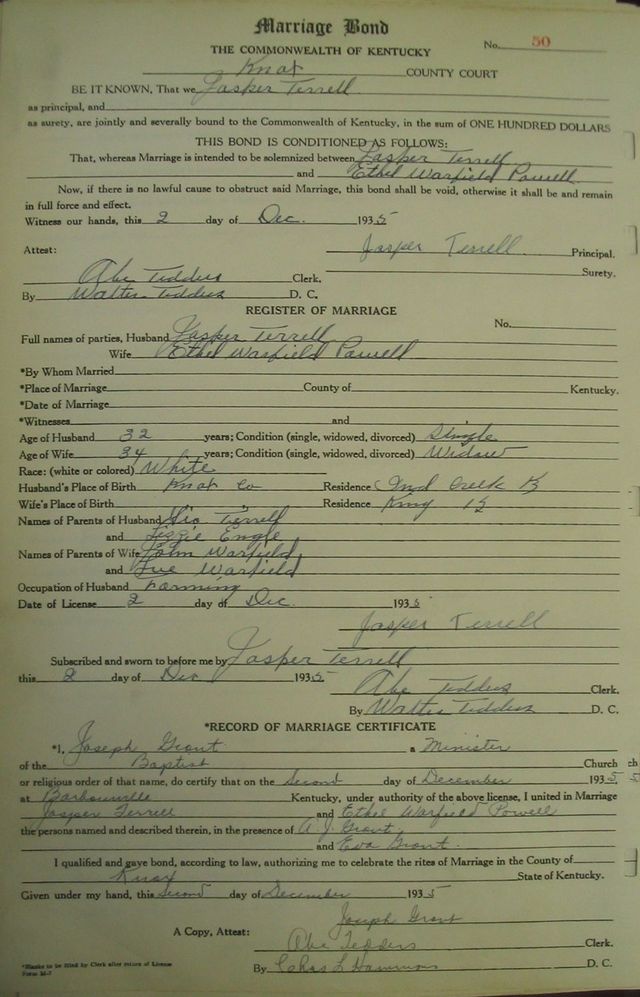 Marriage Bond
THE COMMONWEALTH OF KENTUCKY
No. 50
Knox COUNTY COURT
BE IT KNOWN, That we Jasper Terrell
as principal, and
as surety, are jointly and severally bound to the Commonwealth of Kentucky, in the sum of ONE HUNDRED DOLLARS
THIS BOND IS CONDITIONED AS FOLLOWS:
That, whereas Marriage is intended to be solemnized between Jasper Terrell
and Ethel Warfield Powell
Now, if there is no lawful cause to obstruct said Marriage, this bond shall be void, otherwise it shall be and remain
in full force and effect.
Witness our hands, this 2 day of Dec. 1935
Attest: Jasper Terrell Principal.
Surety.
Abe Tedders Clerk.
By Walter Tedders D. C.
REGISTER OF MARRIAGE
No.
Full names of parties, Husband Jasper Terrell
Wife Ethel Warfield Powell
*By Whom Married
*Place of Marriage County of Kentucky.
*Date of Marriage
*Witnesses and
Age of Husband 32 years; Condition (single, widowed, divorced) Single
Age of Wife 34 years; Condition (single, widowed, divorced) Widow
Race: (white or colored) White
Husband's Place of Birth Knox Co Residence Creek
Wife's Place of Birth Residence
Names of Parents of Husband Terrell
and Lizzie Engle
Names of Parents of Wife John Warfield
and Sue Warfield
Occupation of Husband Farming
Date of License 2 day of Dec 1935
Jasper Terrell
Subscribed and sworn to before me by Jasper Terrell
this 2 day of Dec 1935
Abe Tedders Clerk.
By Walter Tedders D. C.
*RECORD OF MARRIAGE CERTIFICATE
*I, Joseph Grant a Minister
of the Baptist Church
or religious order of that name, do certify that on the Second day of December 1935
at Barbourville Kentucky, under authority of the above license, I united in Marriage
Jasper Terrell and Ethel Warfield Powell
the persons named and described therein, in the presence of A. J. Grant
and Eva Grant.
I qualified and gave bond, according to law, authorizing me to celebrate the rites of Marriage in the County of
Knox State of Kentucky.
Given under my hand, this Second day of December 1935
Joseph Grant
A Copy, Attest:
Abe Tedders Clerk.
By Chas L Hammons D. C.
*Blanks to be filled by Clerk after return of License
Form M-7